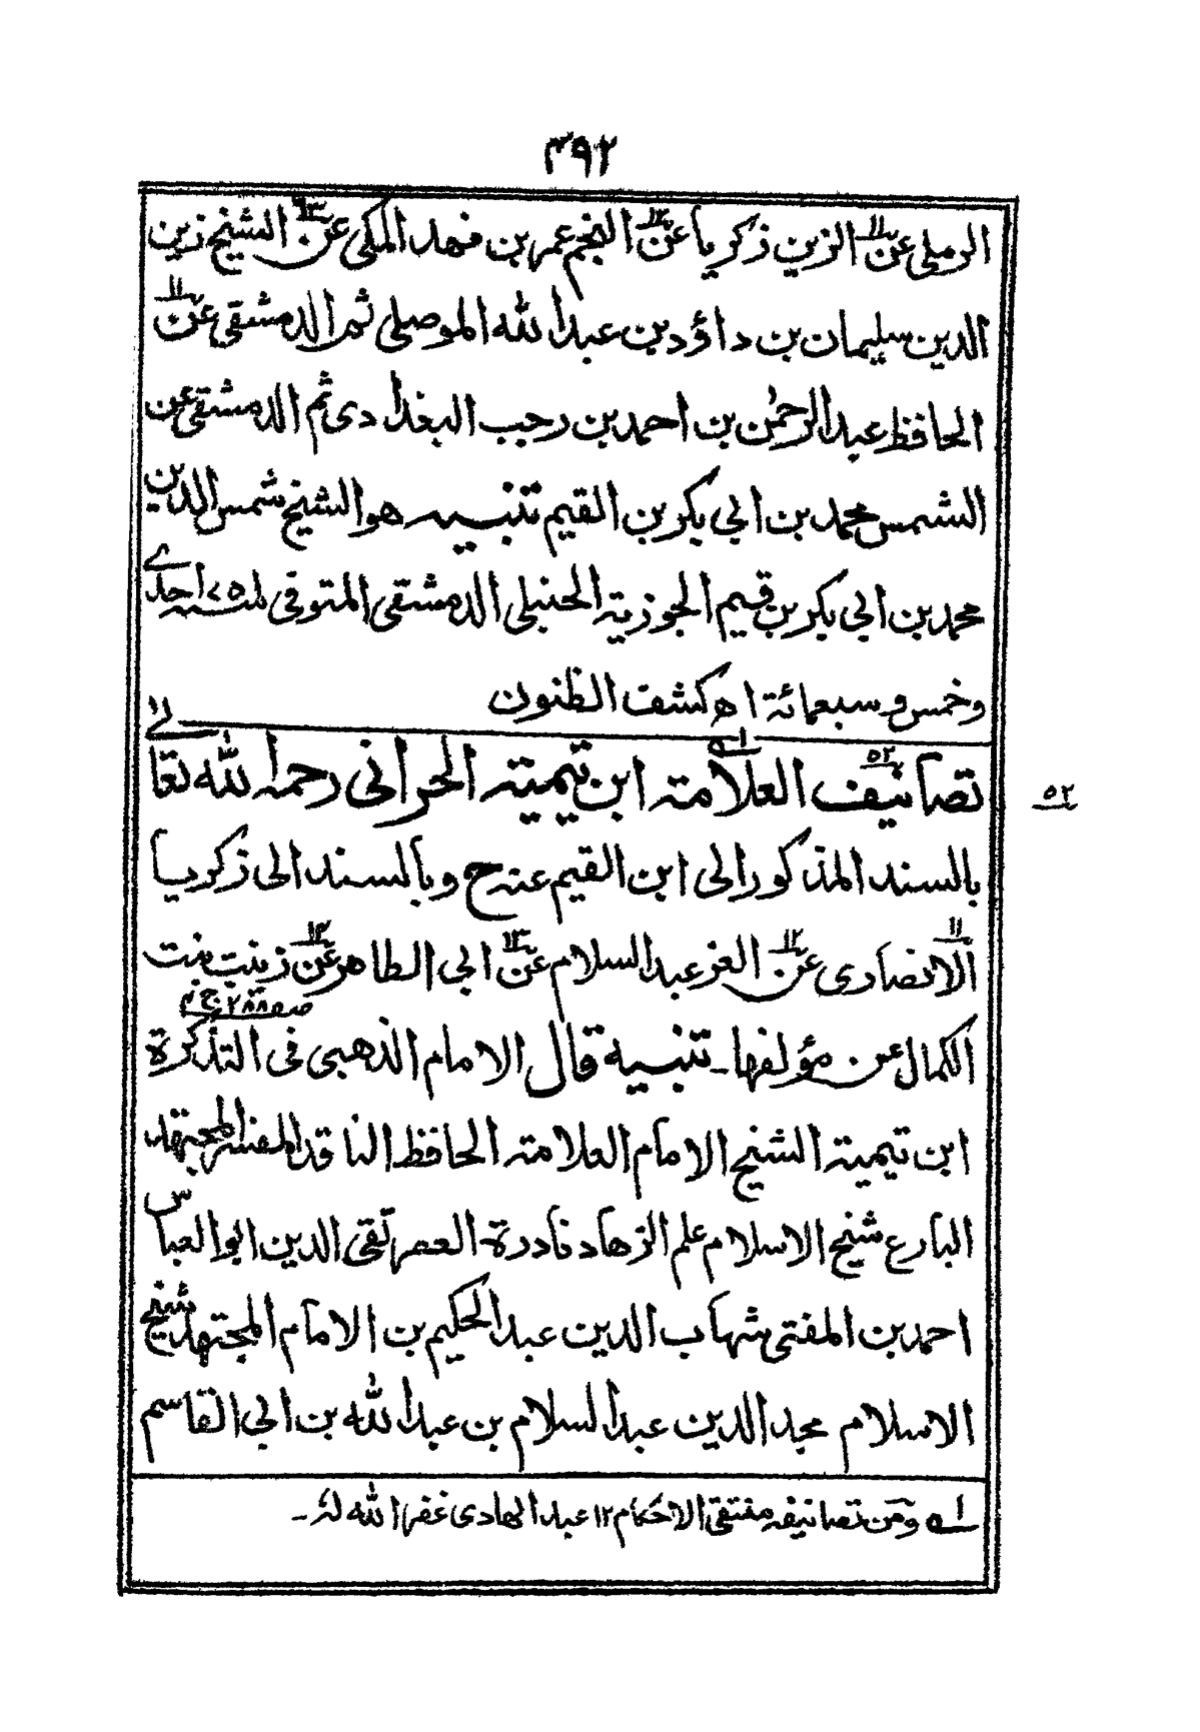 ٣٩٢
الرملی عن١١ الزین زکریا عن١٢ النجم عمر بن فهد المکی عن١٣ الشیخ زین
الدین سلیمان بن داؤد بن عبد الله الموصلی ثم الدمشقی عن١١
الحافظ عبد الرحمٰن بن احمد بن رجب البغدادی ثم الدمشقی عن
الشمس محمد بن ابی بکر بن القیم تنبیه هو الشیخ شمس الدین
محمد بن ابی بکر بن قیم الجوزیة الحنبلی الدمشقی المتوفی لسنه ٧٥١ احدے
وخمس وسبعمائة اھ کشف الظنون
٥٢
تصانیف٥٢ العلامة ابن تیمیة الحرانی رحمه الله تعالے
بالسند المذکور الی ابن القیم عنه ح وبالسند الی زکریا
الانصاری١١ عن١٢ العز عبد السلام عن١٣ ابی الطاهر عن١٤ زینب بنت
الکمال عن مؤلفها۔ تنبیه قال الامام الذهبی فی التذکرة صـ٢٨٨ ج٤
ابن تیمیة الشیخ الامام العلامة الحافظ الناقد المفسر المجتهد
البارع شیخ الاسلام علم الزهاد نادرة العصر تقی الدین ابو العباس
احمد بن المفتی شهاب الدین عبد الحکیم بن الامام المجتهد شیخ
الاسلام مجد الدین عبد السلام بن عبد الله بن ابی القاسم
اے ومن تصانیفه منتقی الاحکام ١٢ عبد الهادی غفر الله له۔